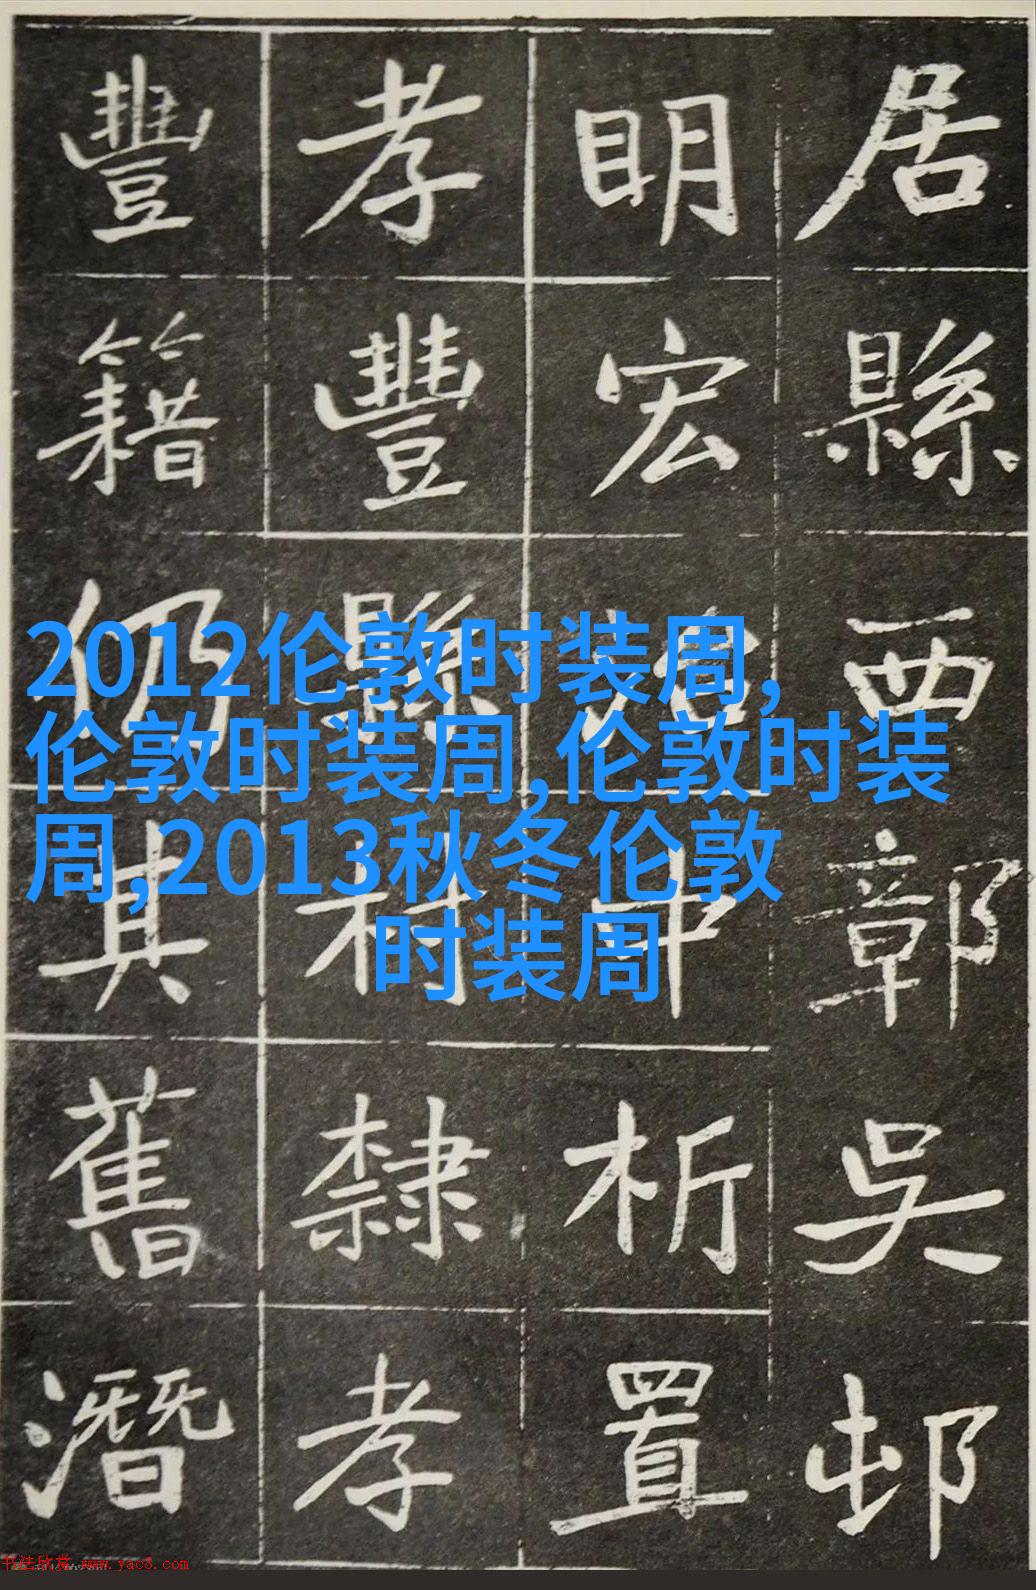 居縣西鄣吳邨
明宏治中析置
孝豐縣村隸孝
豐籍仍其舊潛
2012伦敦时装周,
伦敦时装周,伦敦时装
周,2013秋冬伦敦
时装周
书法欣赏 www.yac8.com